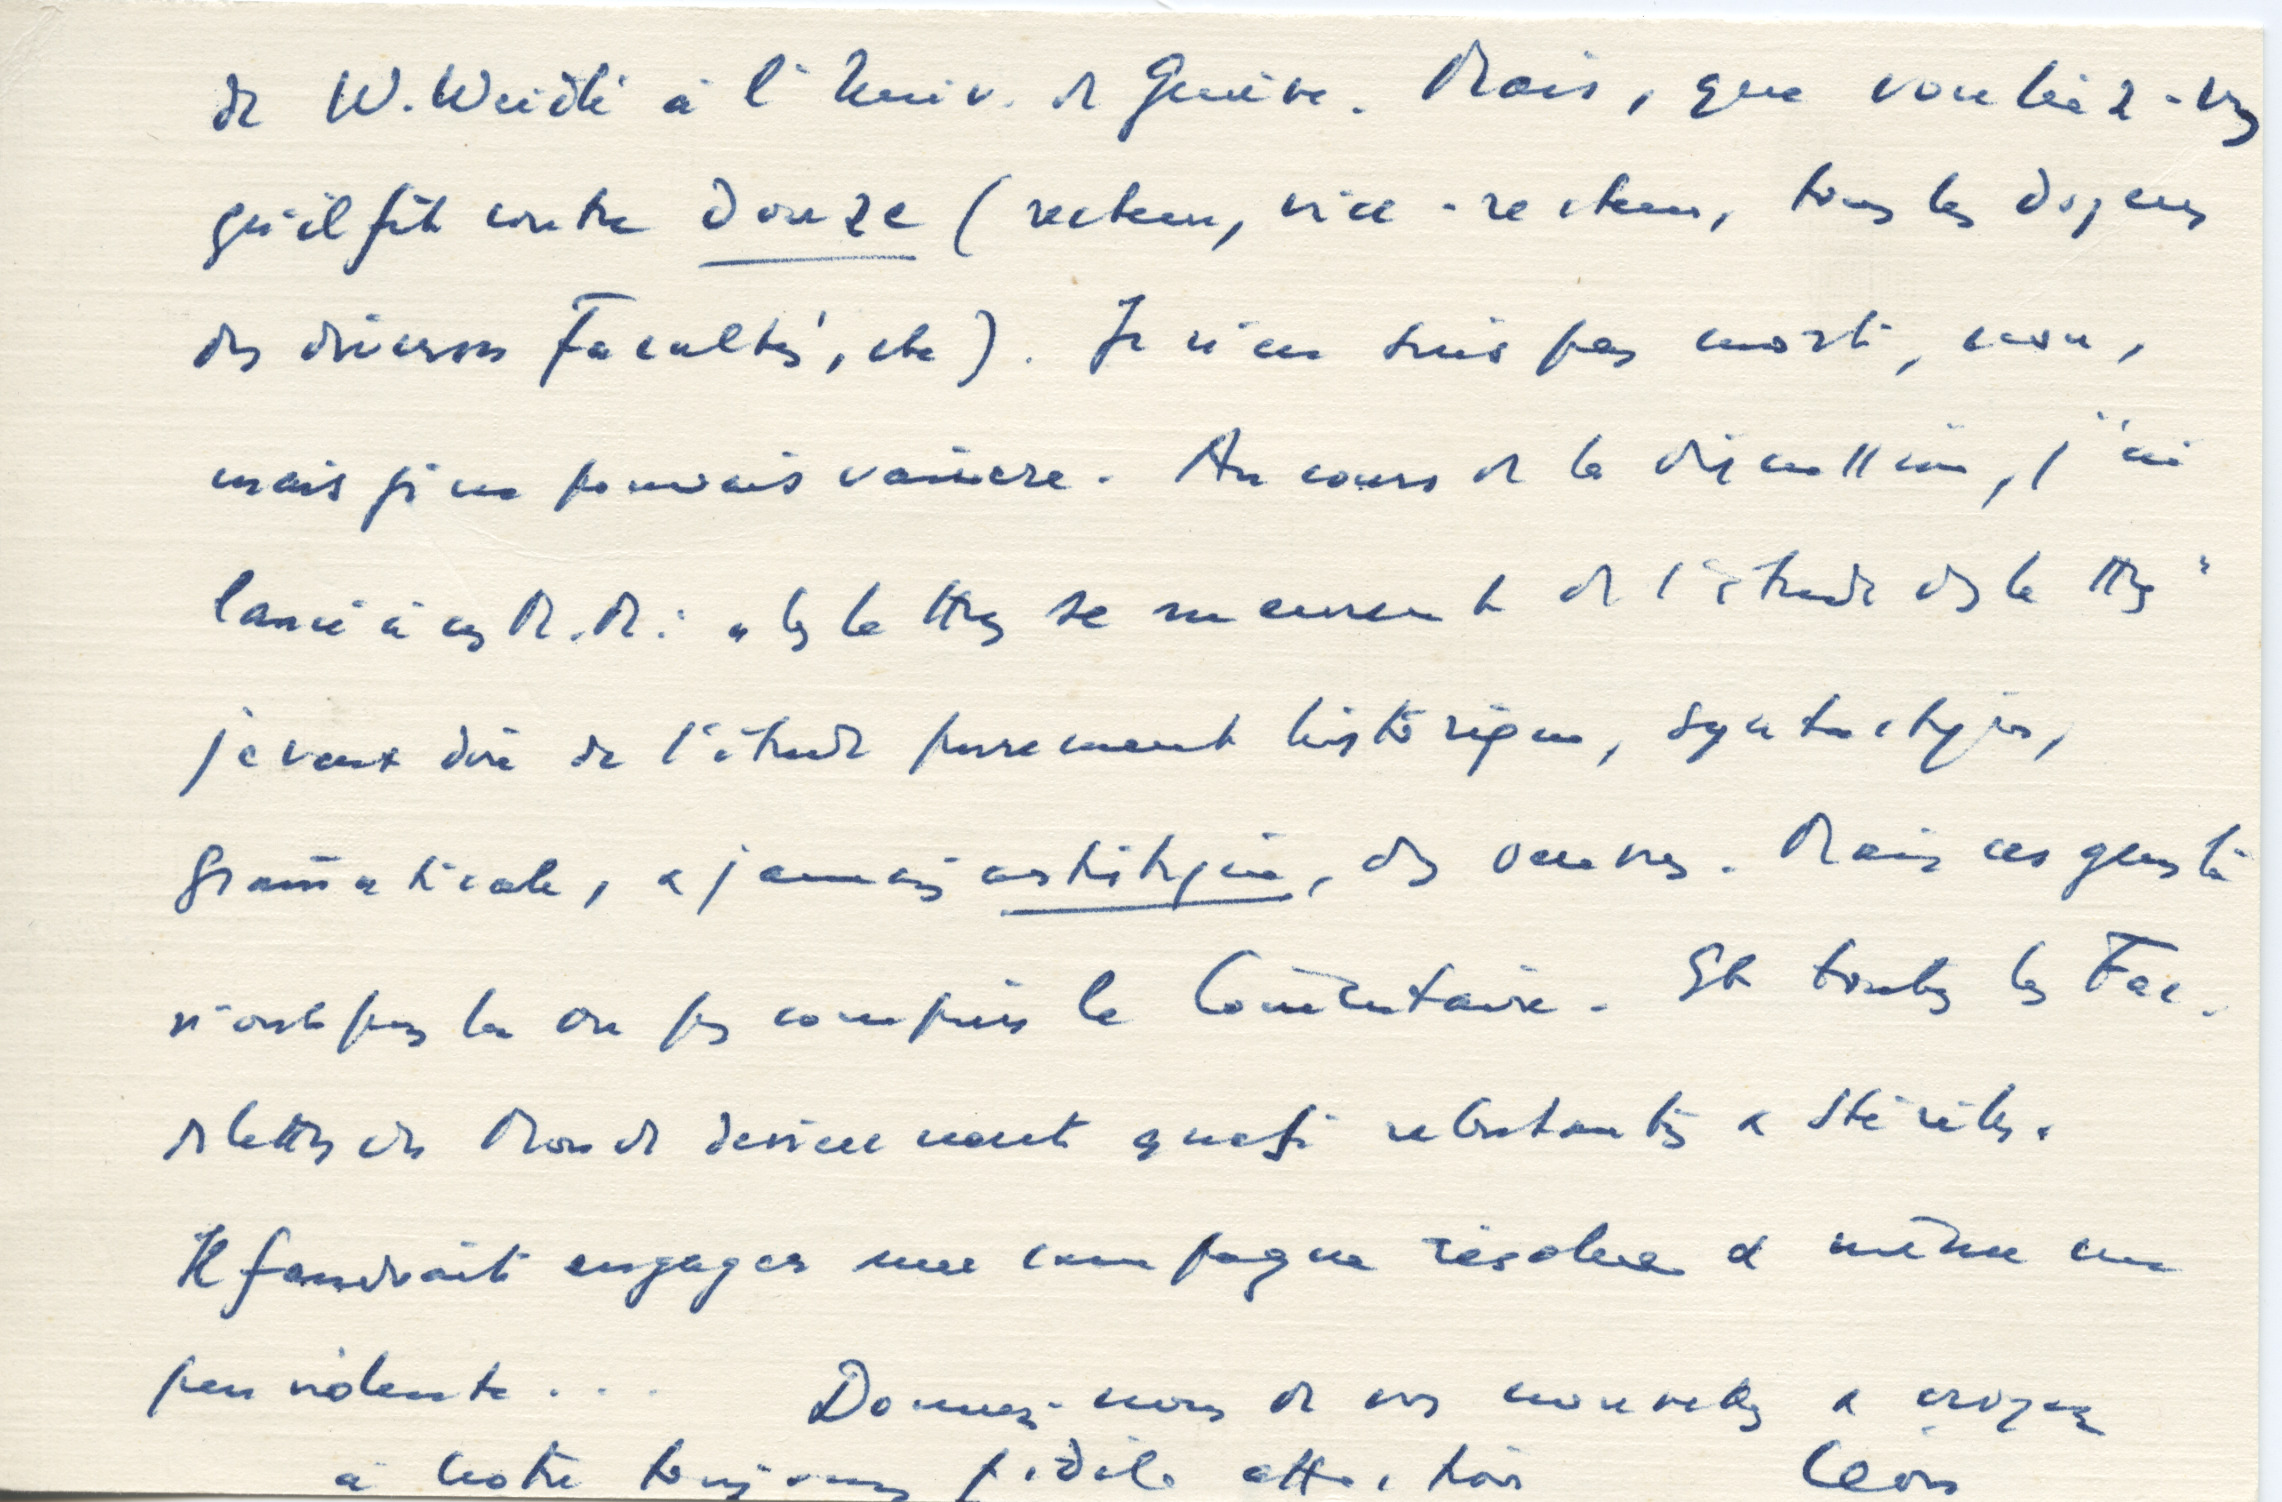 de W. Weidlé à l'Univ. de Genève. Mais, que vouliez-vs
qu'il fît contre douze (recteur, vice-recteur, tous les doyens
des diverses Facultés, etc). Je n'en suis pas mort, non,
mais je ne pouvais vaincre. Au cours de la discussion, j'ai
lancé à ces M.M.: "les lettres se meurent de l'étude des lettres"
je veux dire de l'étude purement historique, syntactique,
grammaticale, & jamais artistique, des oeuvres. Mais ces gens-là
n'ont pas lu ou pas compris le Commentaire. Et toutes les Fac.
de lettres du Monde deviennent quasi rebutantes & stériles.
Il faudrait engager une campagne résolue & même un
peu violente... Donnez-nous de vos nouvelles & croyez
à notre toujours fidèle affection